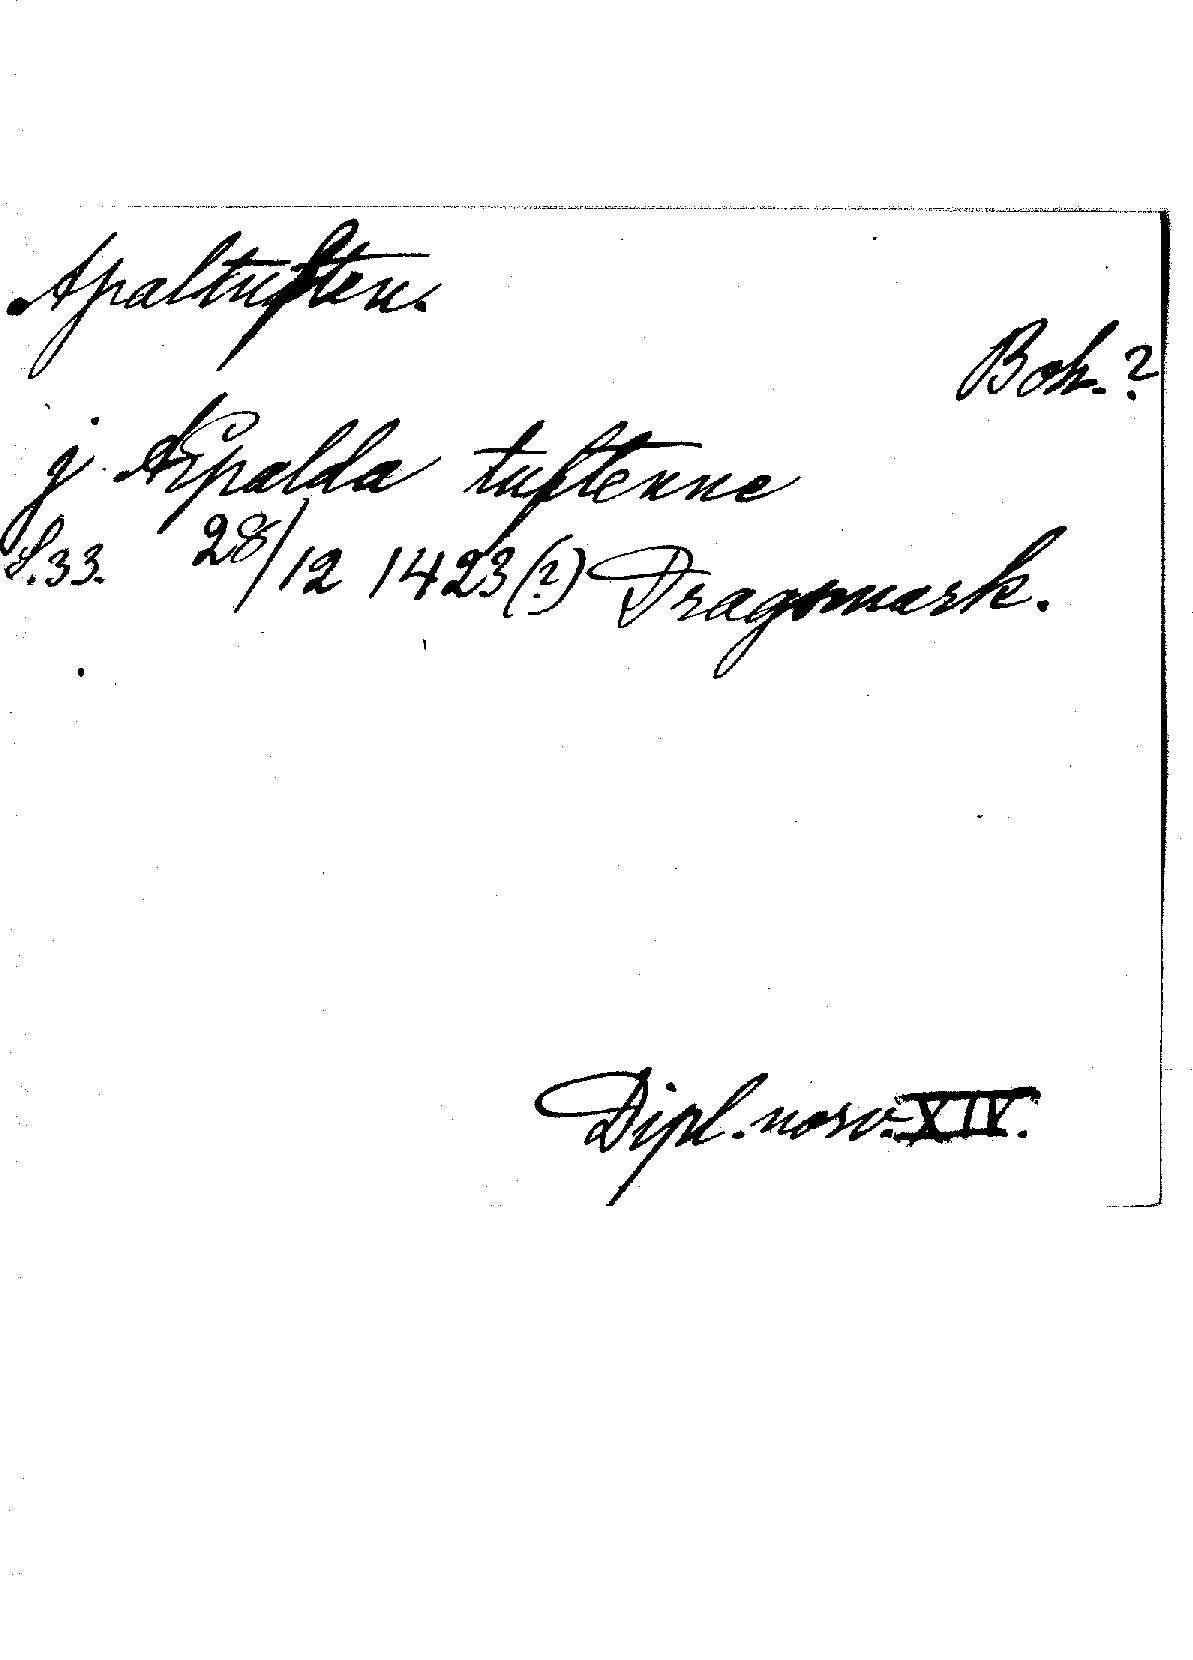 Apaltuften.
Boh.?
j Æpalda tuftenne
S.33. 28/12 1423(?) Dragsmark.
Dipl. norv. XIV.